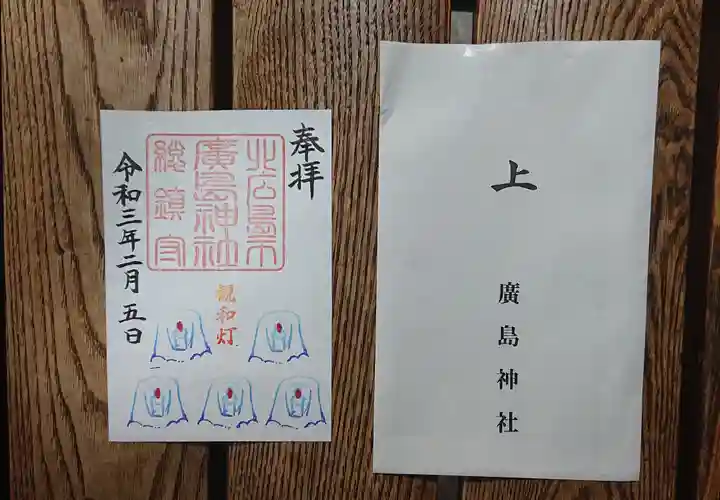 奉拝
北広島市
廣島神社
総鎮守
親和灯
令和三年二月五日
上
廣島神社